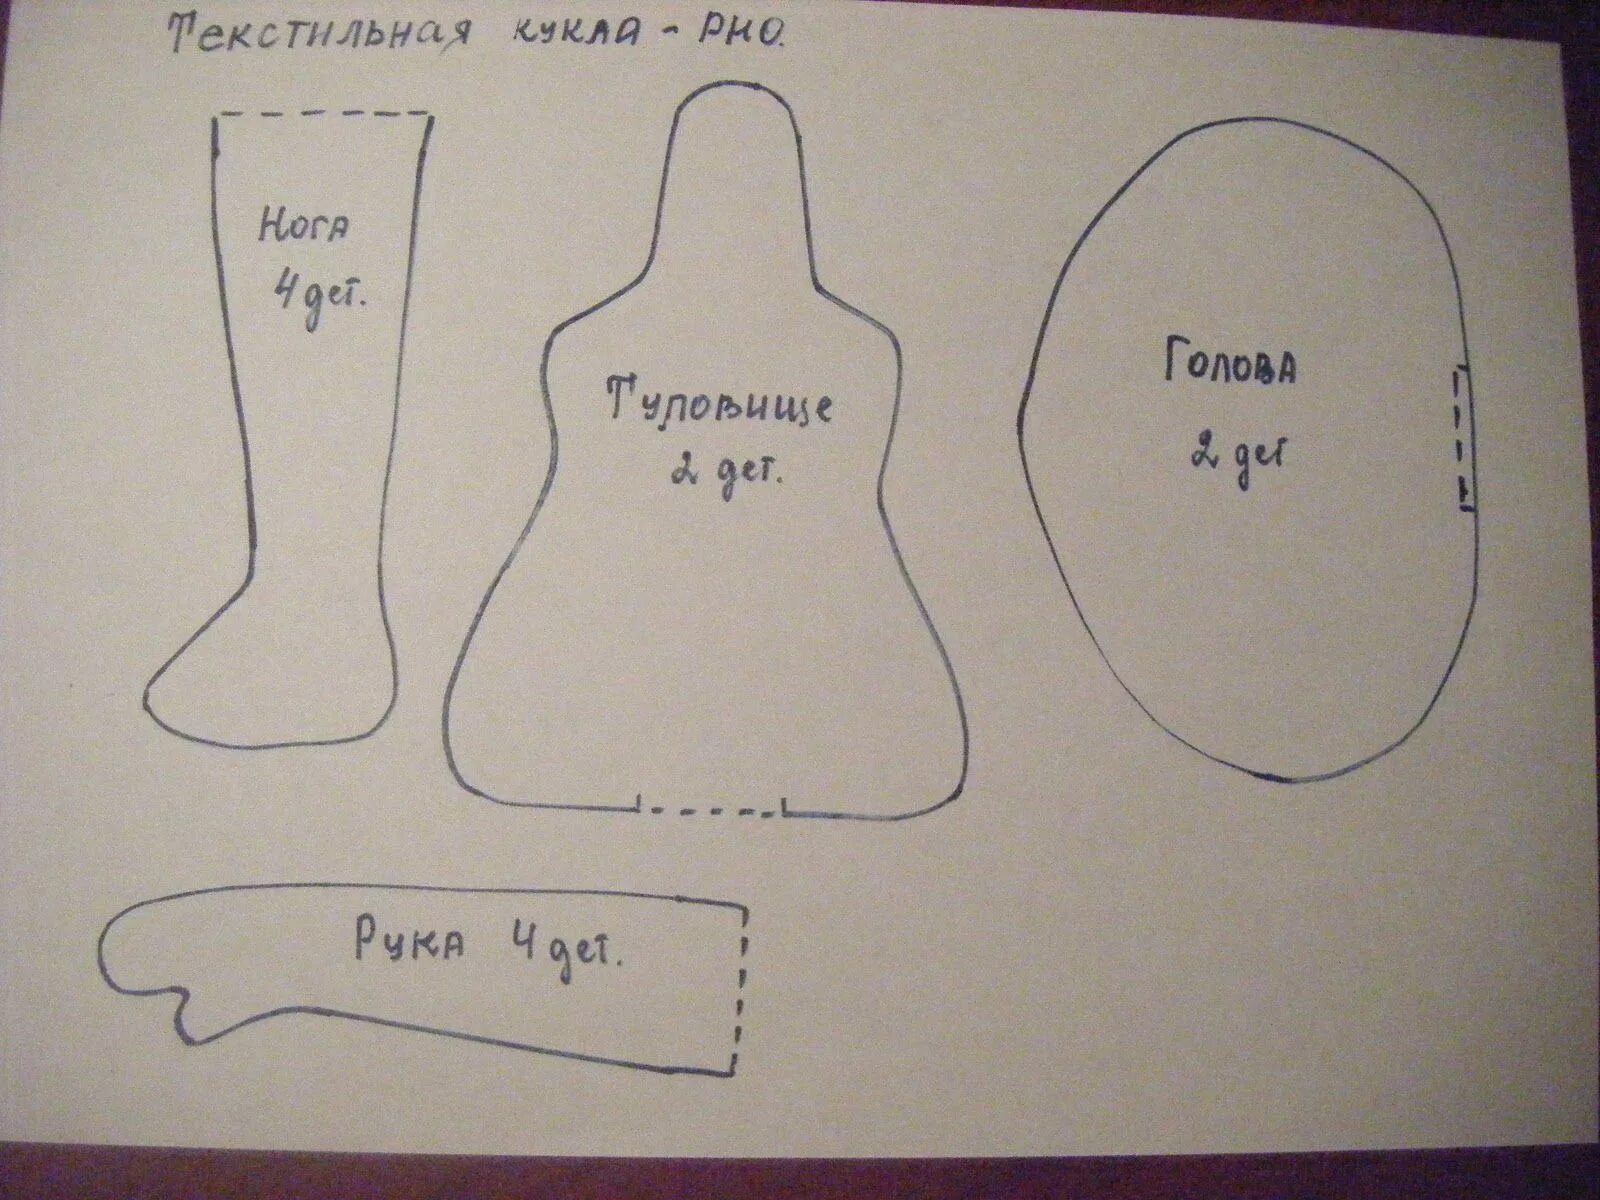 Текстильная кукла - РНО.
Нога
4 дет.
Туловище
2 дет.
Голова
2 дет
Рука 4 дет.